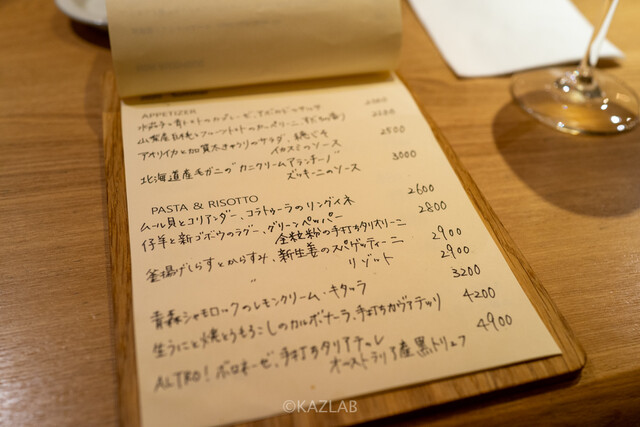 APPETIZER
水茄子と青トマトのカプレーゼ、すだちの
2200
アオリイカと加賀太きゅうりのサラダ、
2500
イカスミのソース
北海道産毛ガニの"カニクリームアランチーノ"
3000
ズッキーニのソース
PASTA & RISOTTO
ムール貝とコリアンダー、コラトゥーラのリングイネ
2600
仔羊と新ゴボウのラグー、グリーンペッパー
2800
全粒粉の手打ちタリオリーニ
釜揚げしらすとからすみ、新生姜のスパゲッティーニ
2900
〃 リゾット
2900
青森シャモロックのレモンクリーム・キタッラ
3200
生うにと焼とうもろこしのカルボナーラ、手打ちタヴァテッリ
4200
ALTRO! ボロネーゼ、手打ちタリアテッレ
4900
オーストラリア産黒トリュフ
©KAZLAB